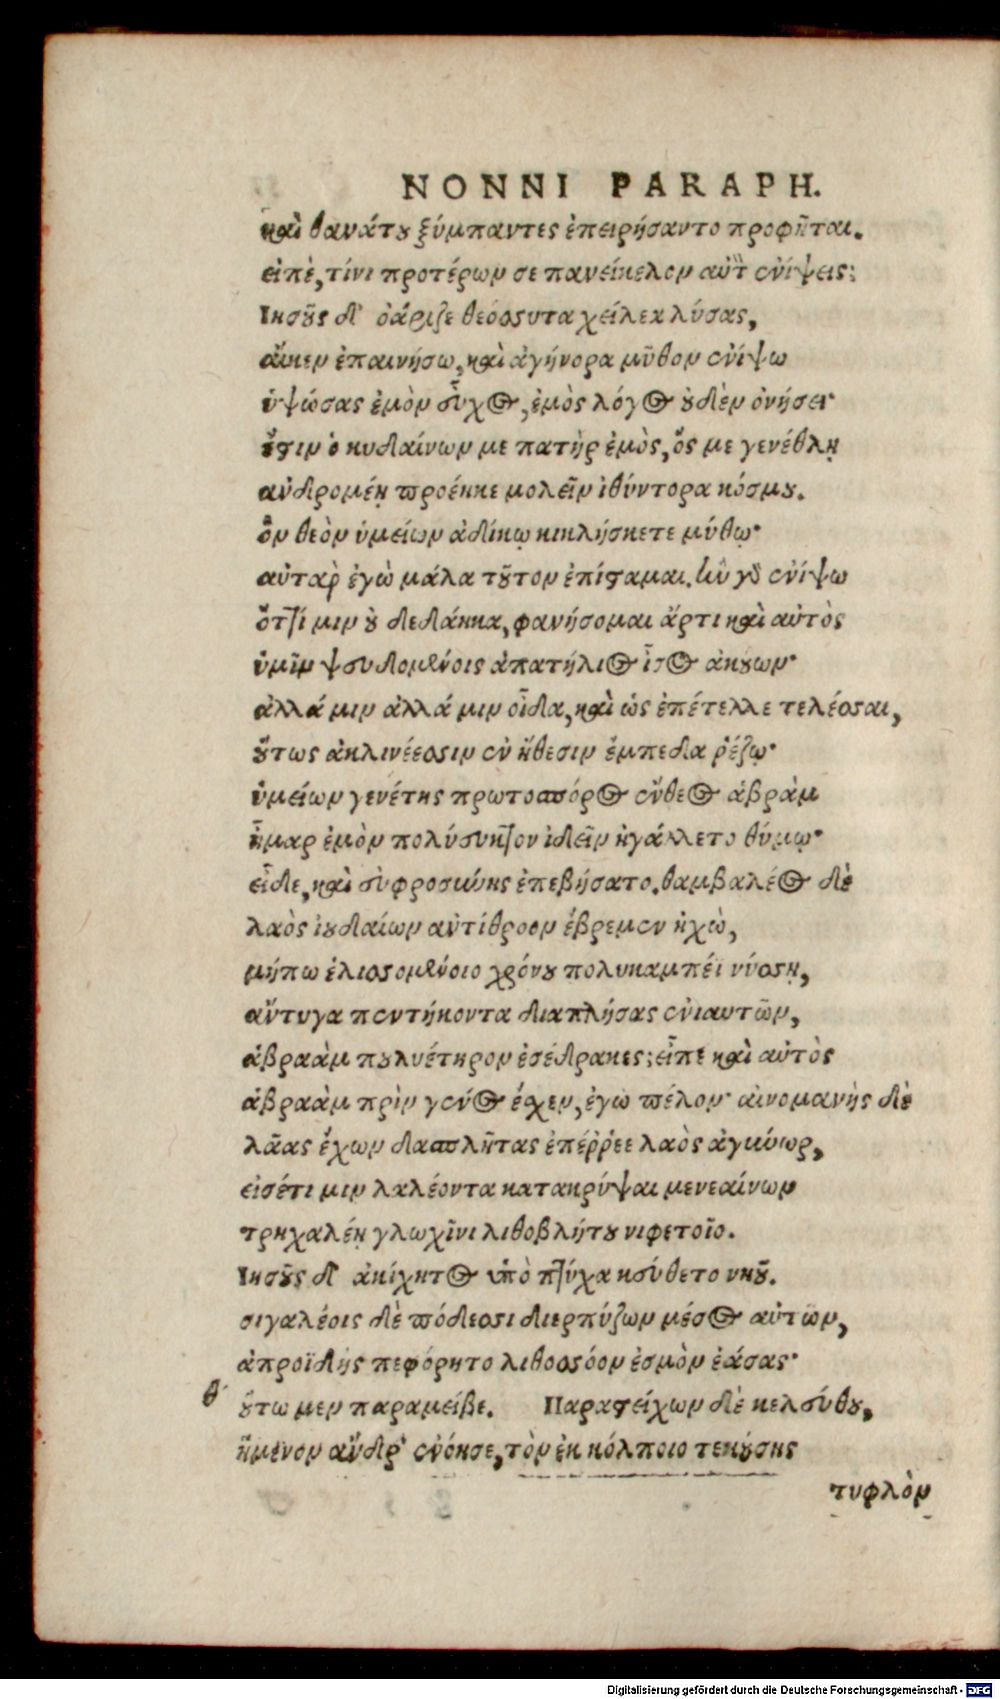 NONNI PARAPH.
καὶ θανάτου ξύμπαντες ἐπειρήσαντο προφῆται.
εἰπὲ, τίνι προτέρων σε πανείκελον αὐτὸν ἐνίψεις;
Ἰησοῦς δ' ὀάριζε θεόσσυτα χείλεα λύσας,
αἴκεν ἐπαινήσω, καὶ ἀγήνορα μῦθον ἐνίψω
ὑψώσας ἐμὸν εὖχος, ἐμὸς λόγος οὐδὲν ὀνήσει·
ἔστιν ὁ κυδαίνων με πατὴρ ἐμὸς, ὅς με γενέθλη
ἀνδρομέη προέηκε μολεῖν ἰθύντορα κόσμου.
ὃν θεὸν ὑμείων ἀδίκῳ κικλήσκετε μύθῳ·
αὐτὰρ ἐγὼ μάλα τοῦτον ἐπίσταμαι. ἢν γὰρ ἐνίψω
ὅττί μιν οὐ δεδάηκα, φανήσομαι ἄρτι καὶ αὐτὸς
ὑμῖν ψευδομένοις ἀπατήλιος ἶσος ἀκούων·
ἀλλά μιν ἀλλά μιν οἶδα, καὶ ὡς ἐπέτελλε τελέσσαι,
οὕτως ἀκλινέεσσιν ἐν ἤθεσιν ἔμπεδα ῥέζω·
ὑμείων γενέτης πρωτοσπόρος ἔνθεος ἀβρὰμ
ἦμαρ ἐμὸν πολύευκτον ἰδεῖν ἠγάλλετο θύμῳ·
εἶδε, καὶ εὐφροσύνης ἐπεβήσατο. θαμβαλέος δὲ
λαὸς ἰουδαίων ἀντίθροον ἔβρεμεν ἠχὼ,
μήπω ἑλισσομένοιο χρόνου πολυκαμπέϊ νύσσῃ,
ἄντυγα πεντήκοντα διαπλήσας ἐνιαυτῶν,
ἀβραὰμ πουλυέτηρον ἐσέδρακες; εἶπε καὶ αὐτὸς
ἀβραὰμ πρὶν γένος ἔσχεν, ἐγὼ πέλον· αἰνομανὴς δὲ
λᾶας ἔχων δασπλῆτας ἐπέῤῥεε λαὸς ἀγκύωρ,
εἰσέτι μιν λαλέοντα κατακρύψαι μενεαίνων
τρηχαλέῃ γλωχῖνι λιθοβλήτου νιφετοῖο.
Ἰησοῦς δ' ἀκίχητος ὑπὸ πτύχα κεύθετο νηοῦ.
σιγαλέοις δὲ πόδεσσι διερπύζων μέσος αὐτῶν,
ἀπροϊδὴς πεφόρητο λιθοσσόον ἑσμὸν ἐάσας·
θ' οὕτω μεν παραμείβε. Παραστείχων δὲ κελεύθου,
ἥμενον ἄνδρ' ἐνόησε, τὸν ἐκ κόλποιο τεκούσης
τυφλὸν
Digitalisierung gefördert durch die Deutsche Forschungsgemeinschaft - DFG